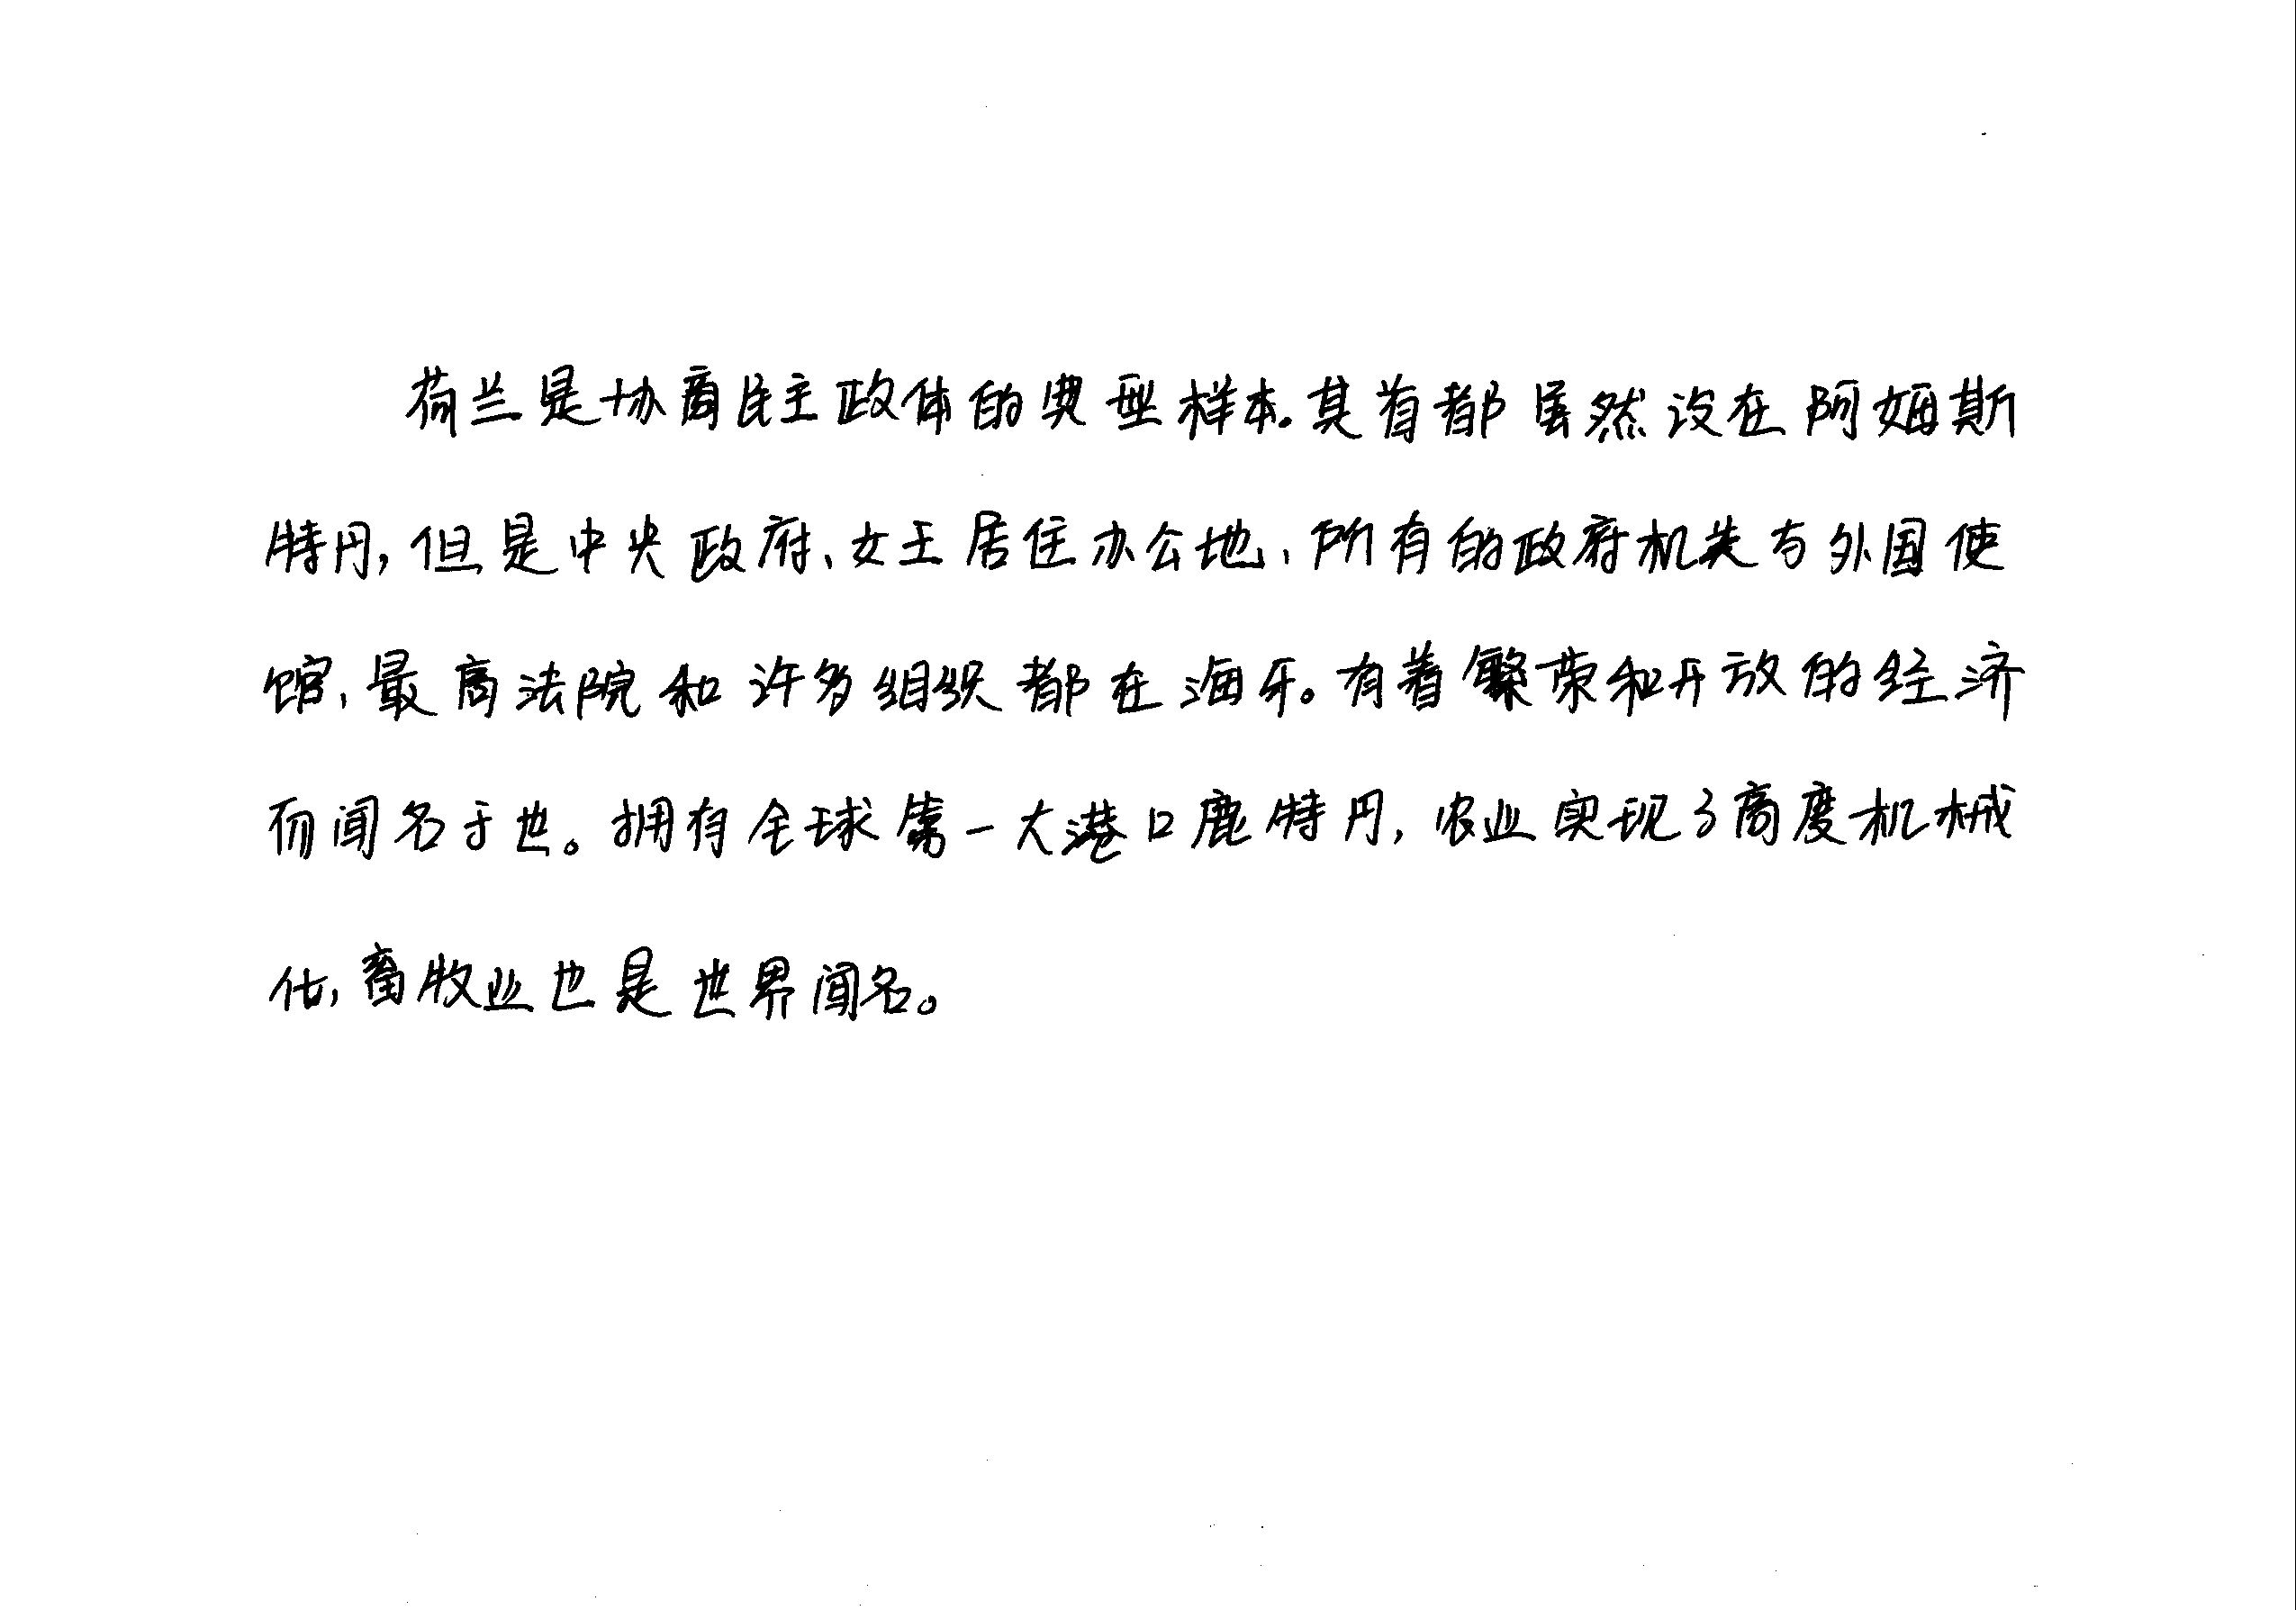 荷兰是协商民主政体的典型样本。其首都虽然设在阿姆斯
特丹,但是中央政府、女王居住办公地、所有的政府机关与外国使
馆、最高法院和许多组织都在海牙。有着繁荣和开放的经济
而闻名于世。拥有全球第一大港口鹿特丹,农业实现了高度机械
化,畜牧业也是世界闻名。